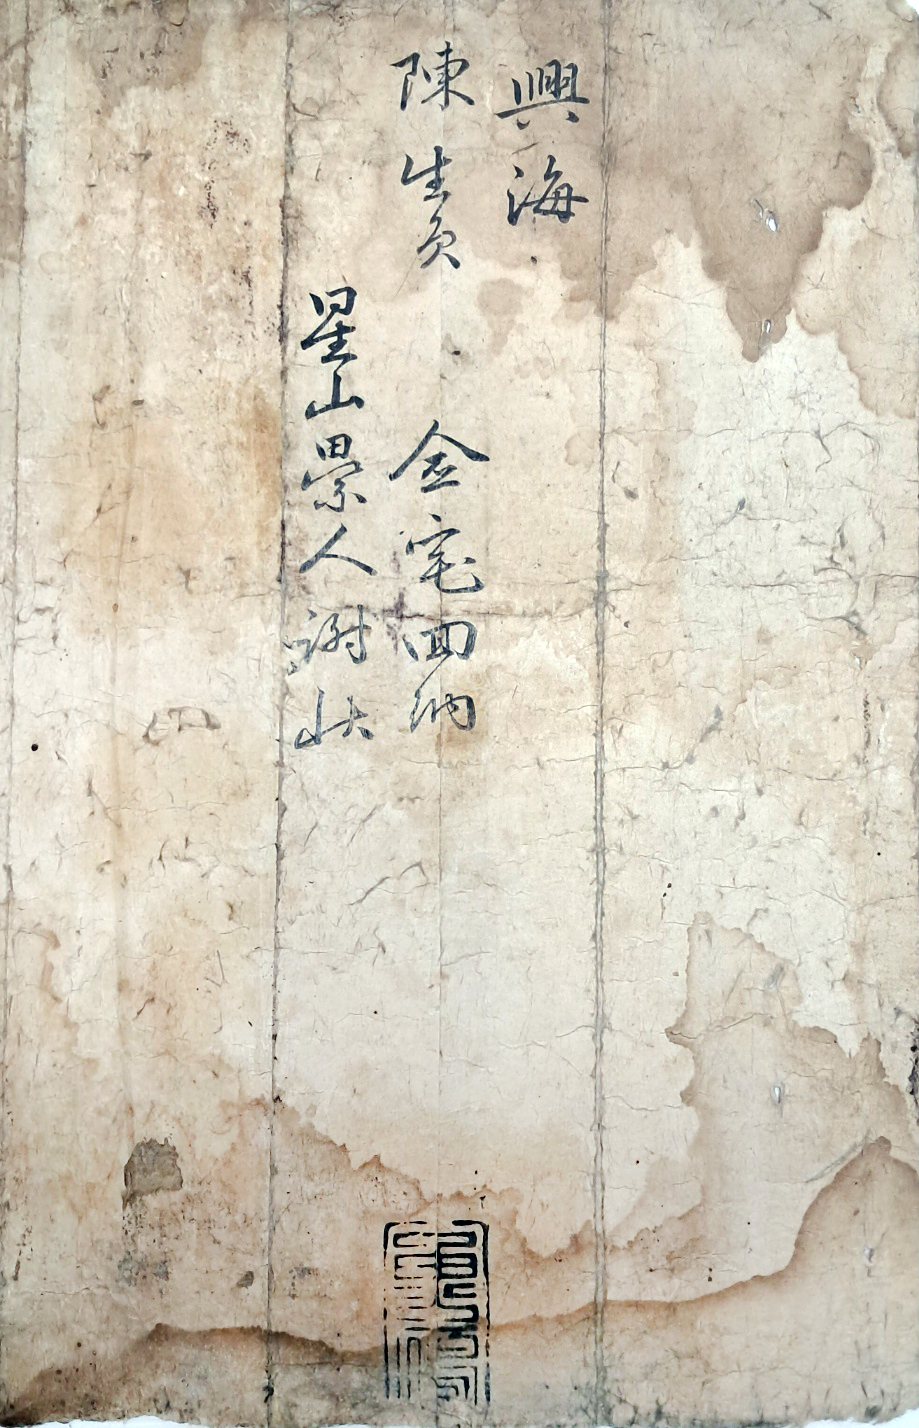 興海
陳生員 僉宅回納
星山累人謝狀